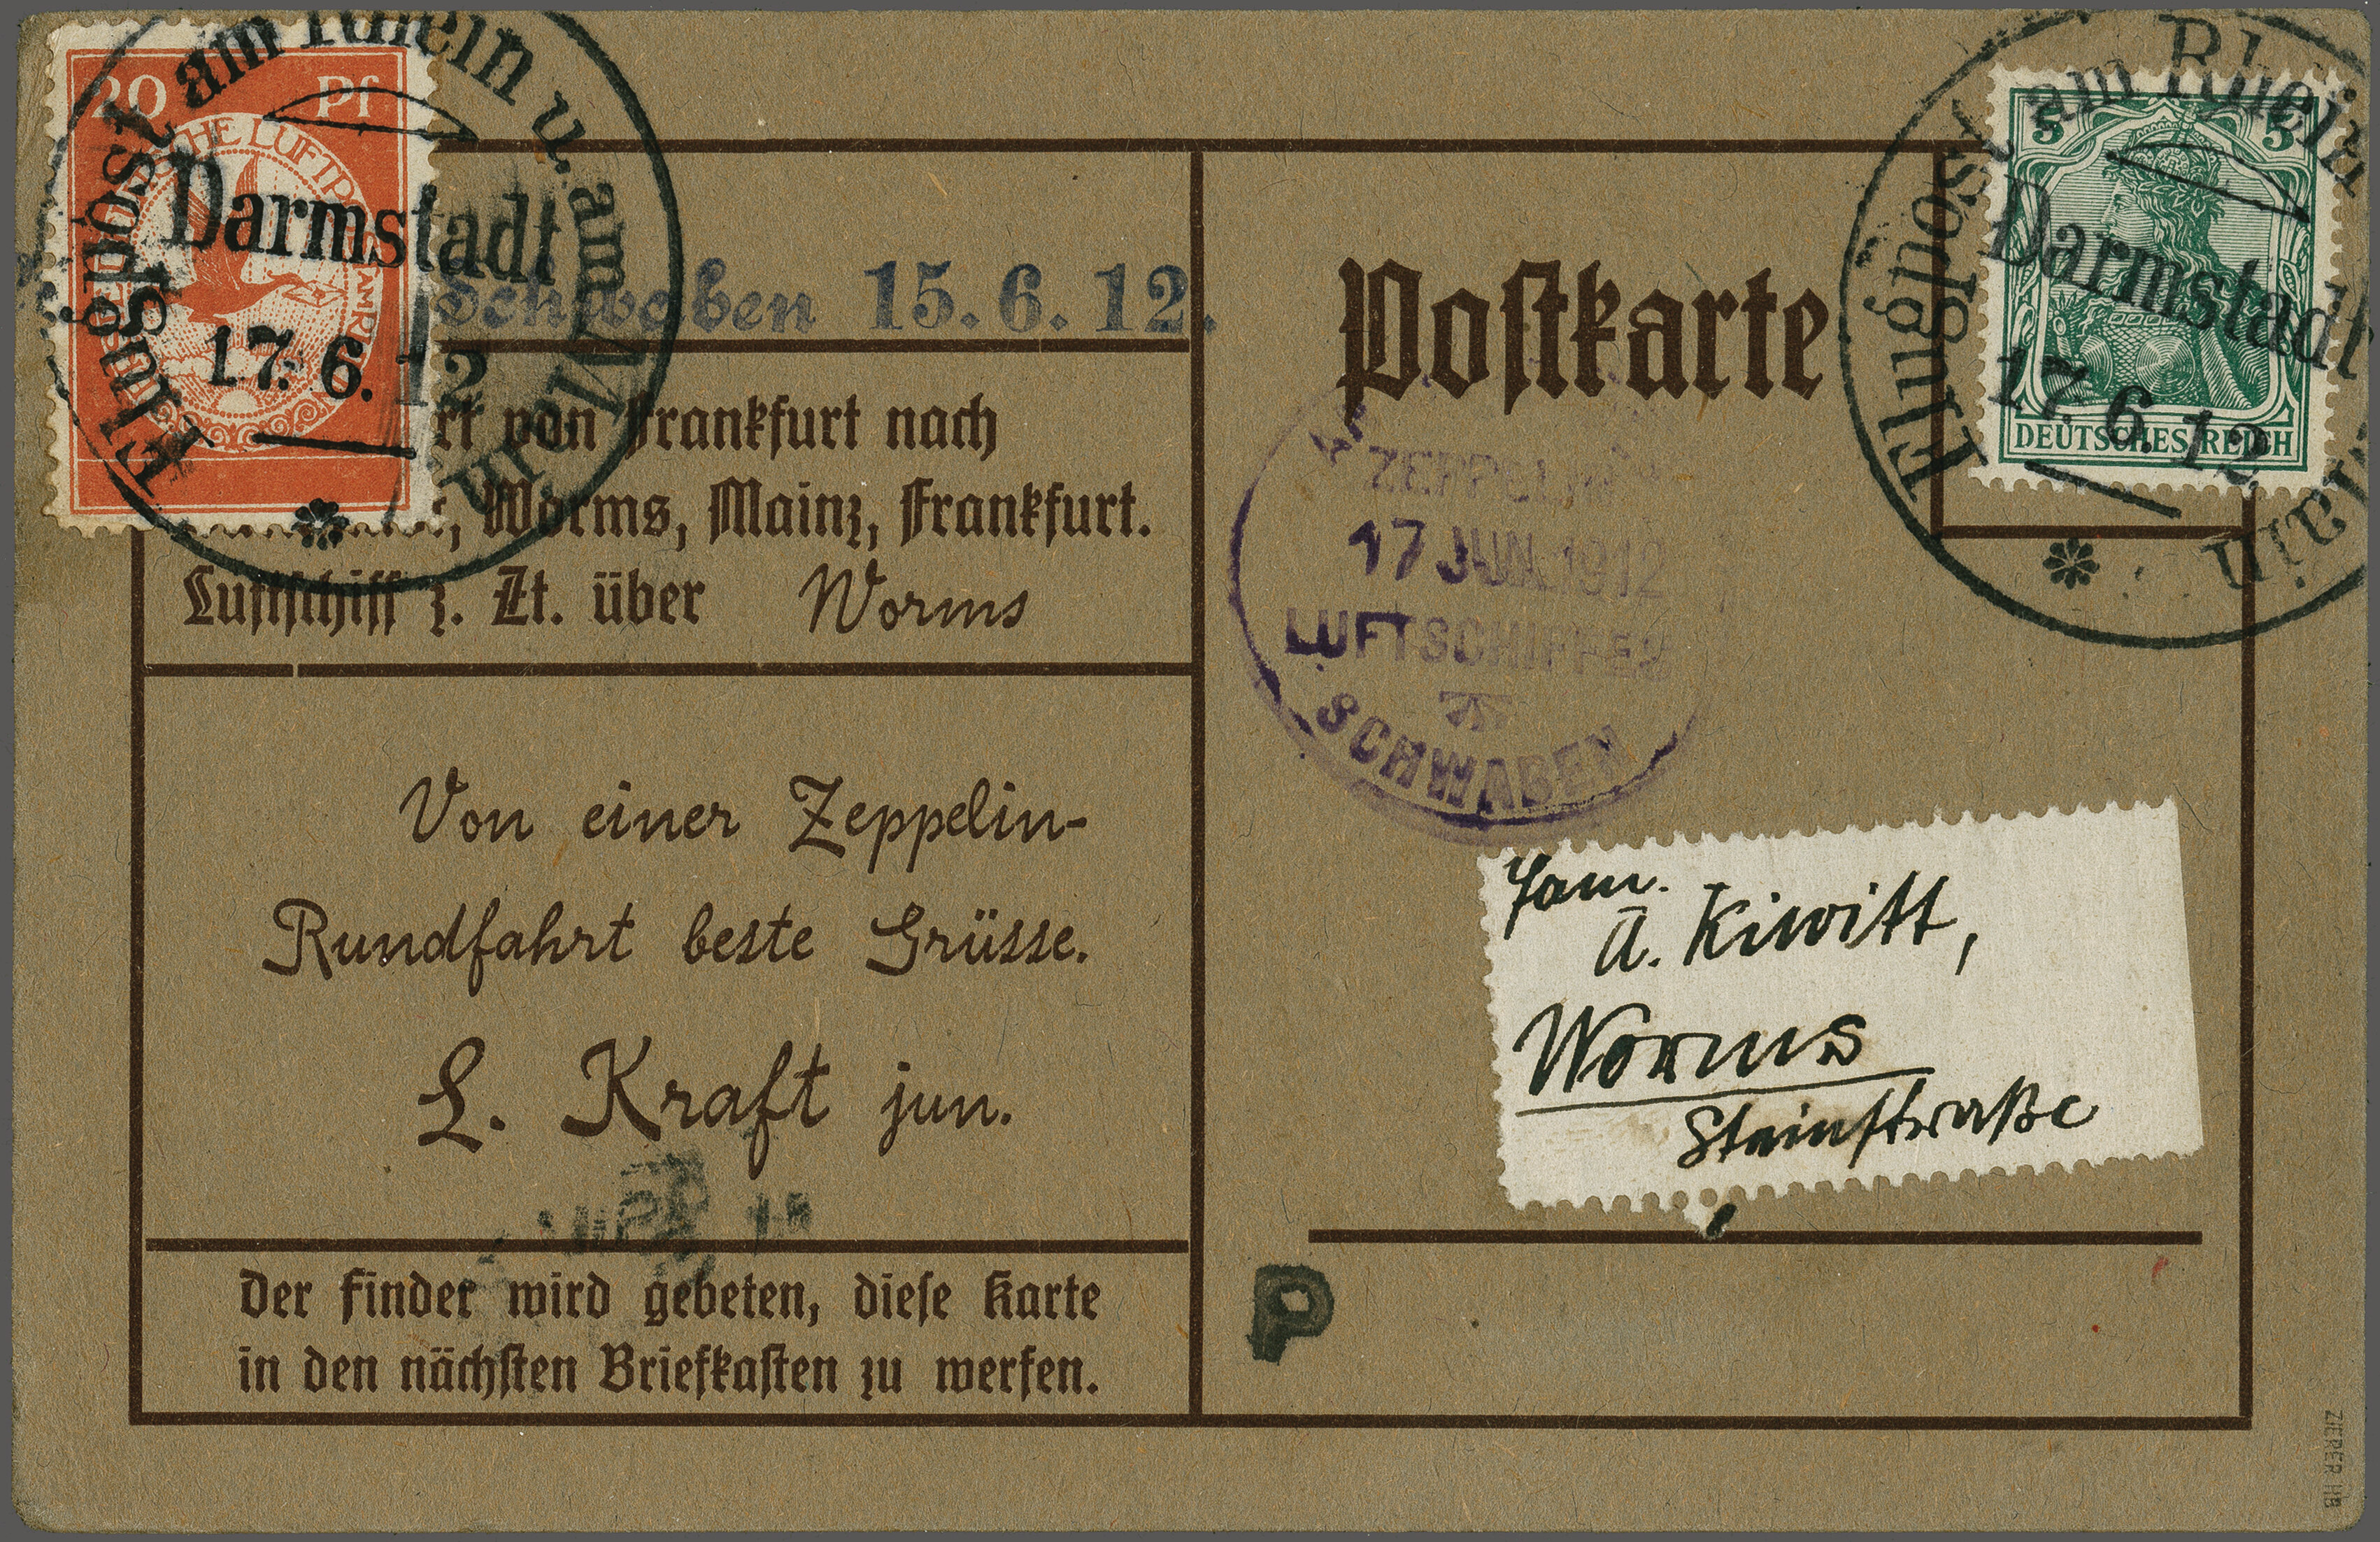 20 Pf
Flugpost am Rhein u. am Main
Darmstadt
17. 6. 12
Schwaben 15. 6. 12.
von Frankfurt nach
Worms, Mainz, Frankfurt.
Luftschiff z. Zt. über Worms
Von einer Zeppelin-
Rundfahrt beste Grüsse.
L. Kraft jun.
Der Finder wird gebeten, diese Karte
in den nächsten Briefkasten zu werfen.
Postkarte
ZEPPELIN
17 JUN. 1912
LUFTSCHIFFES
SCHWABEN
5 5
DEUTSCHES REICH
Flugpost am Rhein
Darmstadt
17. 6. 12
Fam.
A. Kiwitt,
Worms
Steinstraße
P
ZIERER HB